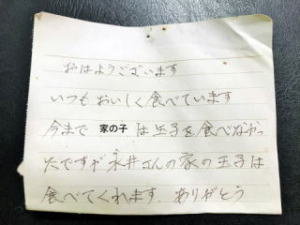 おはようございます
いつもおいしく食べています
今まで 家の子 は玉子を食べなかっ
たですが永井さんの家の玉子は
食べてくれます. ありがとう